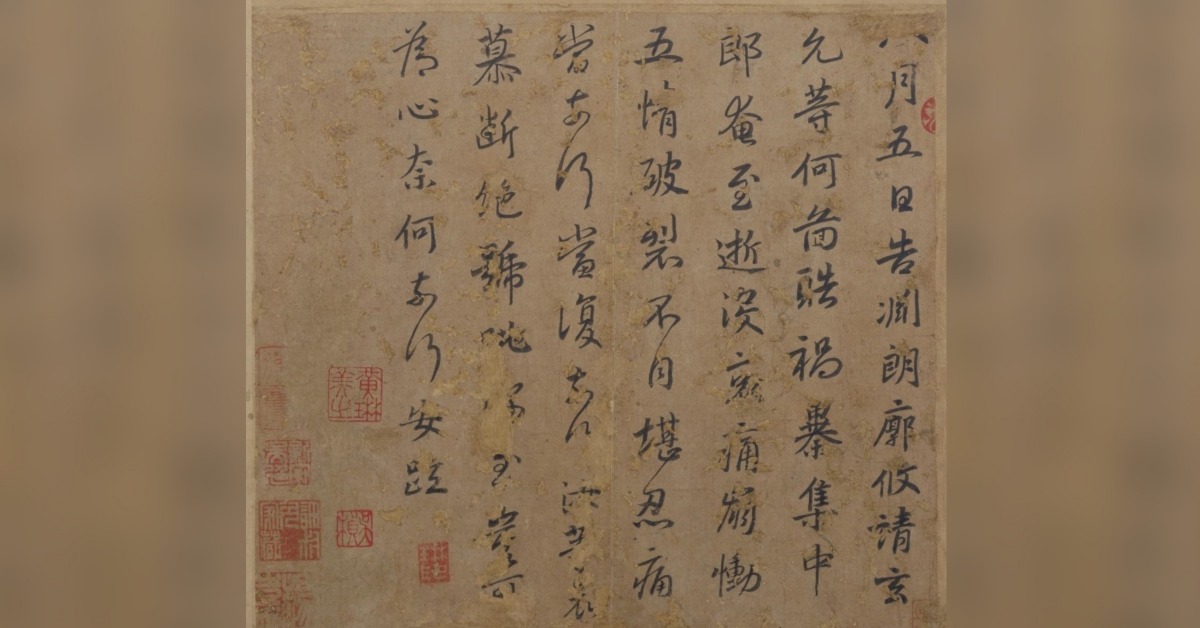 八月五日告淵朗廓攸靖玄
允等何圖酷禍暴集中
郎奄至逝没哀痛崩慟
五情破裂不自堪忍痛
當奈何當復奈何汝等哀
慕斷絕號咷深至豈可
為心奈何奈何安疏
黄琳美之